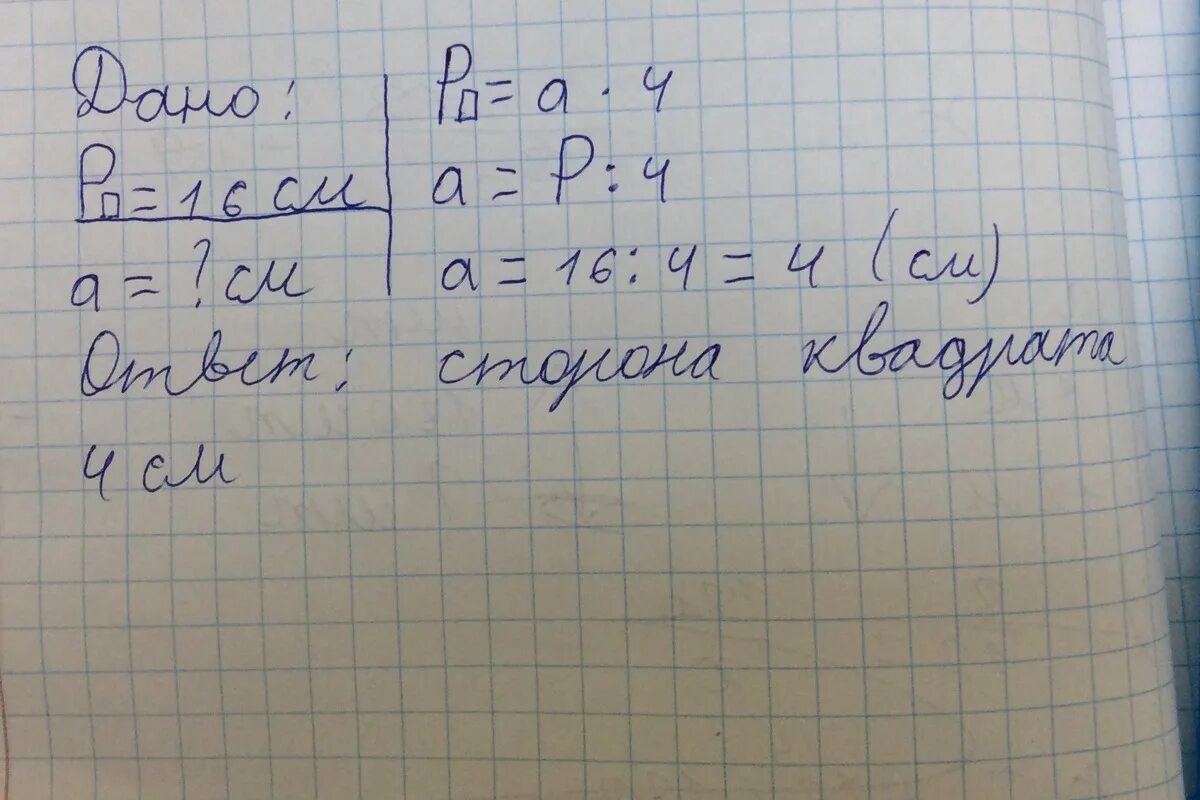 Дано:
P□ = 16 см
a = ? см
P□ = a · 4
a = P : 4
a = 16 : 4 = 4 (см)
Ответ: сторона квадрата
4 см